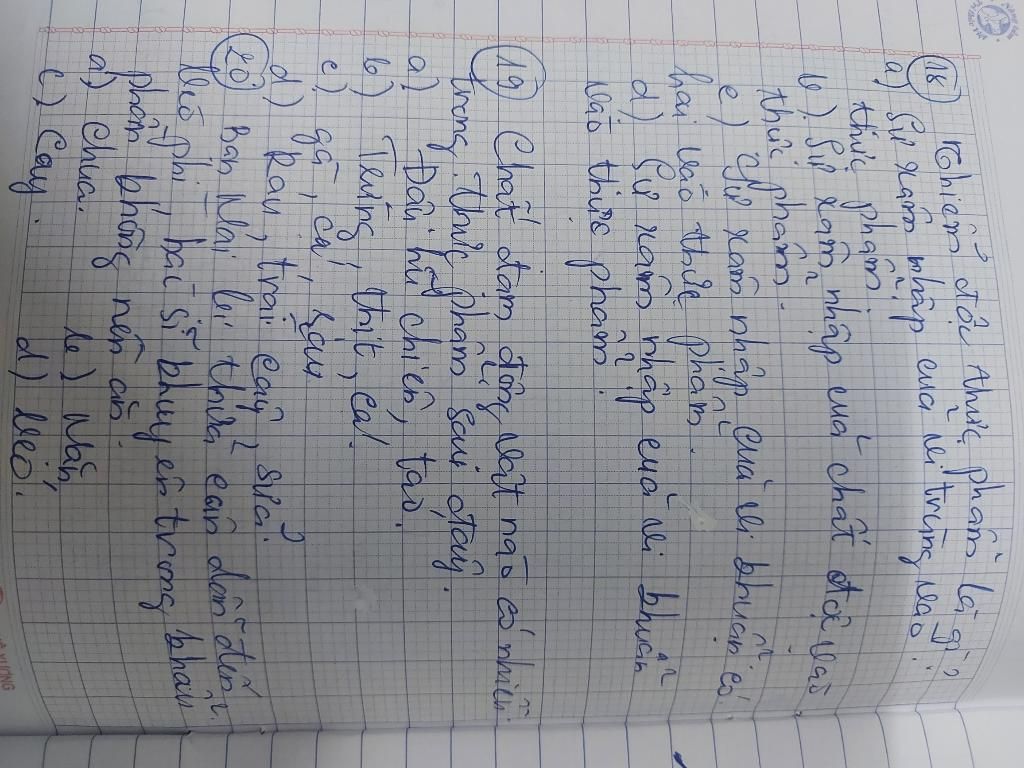 18 Nhiễm độc thực phẩm là gì?
a) Sự xâm nhập của vi trùng vào
thực phẩm.
b) Sự xâm nhập của chất độc vào
thực phẩm.
c) Sự xâm nhập của vi khuẩn có
hại vào thực phẩm.
d) Sự xâm nhập của vi khuẩn
vào thực phẩm.
19 Chất đạm động vật nào có nhiều
trong thực phẩm sau đây.
a) Đậu hũ chiên, tàu.
b) Trứng, thịt, cá.
c) gà, cá, rau
d) Rau, trái cây, sữa.
20 Bạn Mai bị thừa cân dẫn đến
béo phì bác sĩ khuyên trong khẩu
phần không nên ăn.
a) Chua. b) Mặn
c) Cay. d) béo.